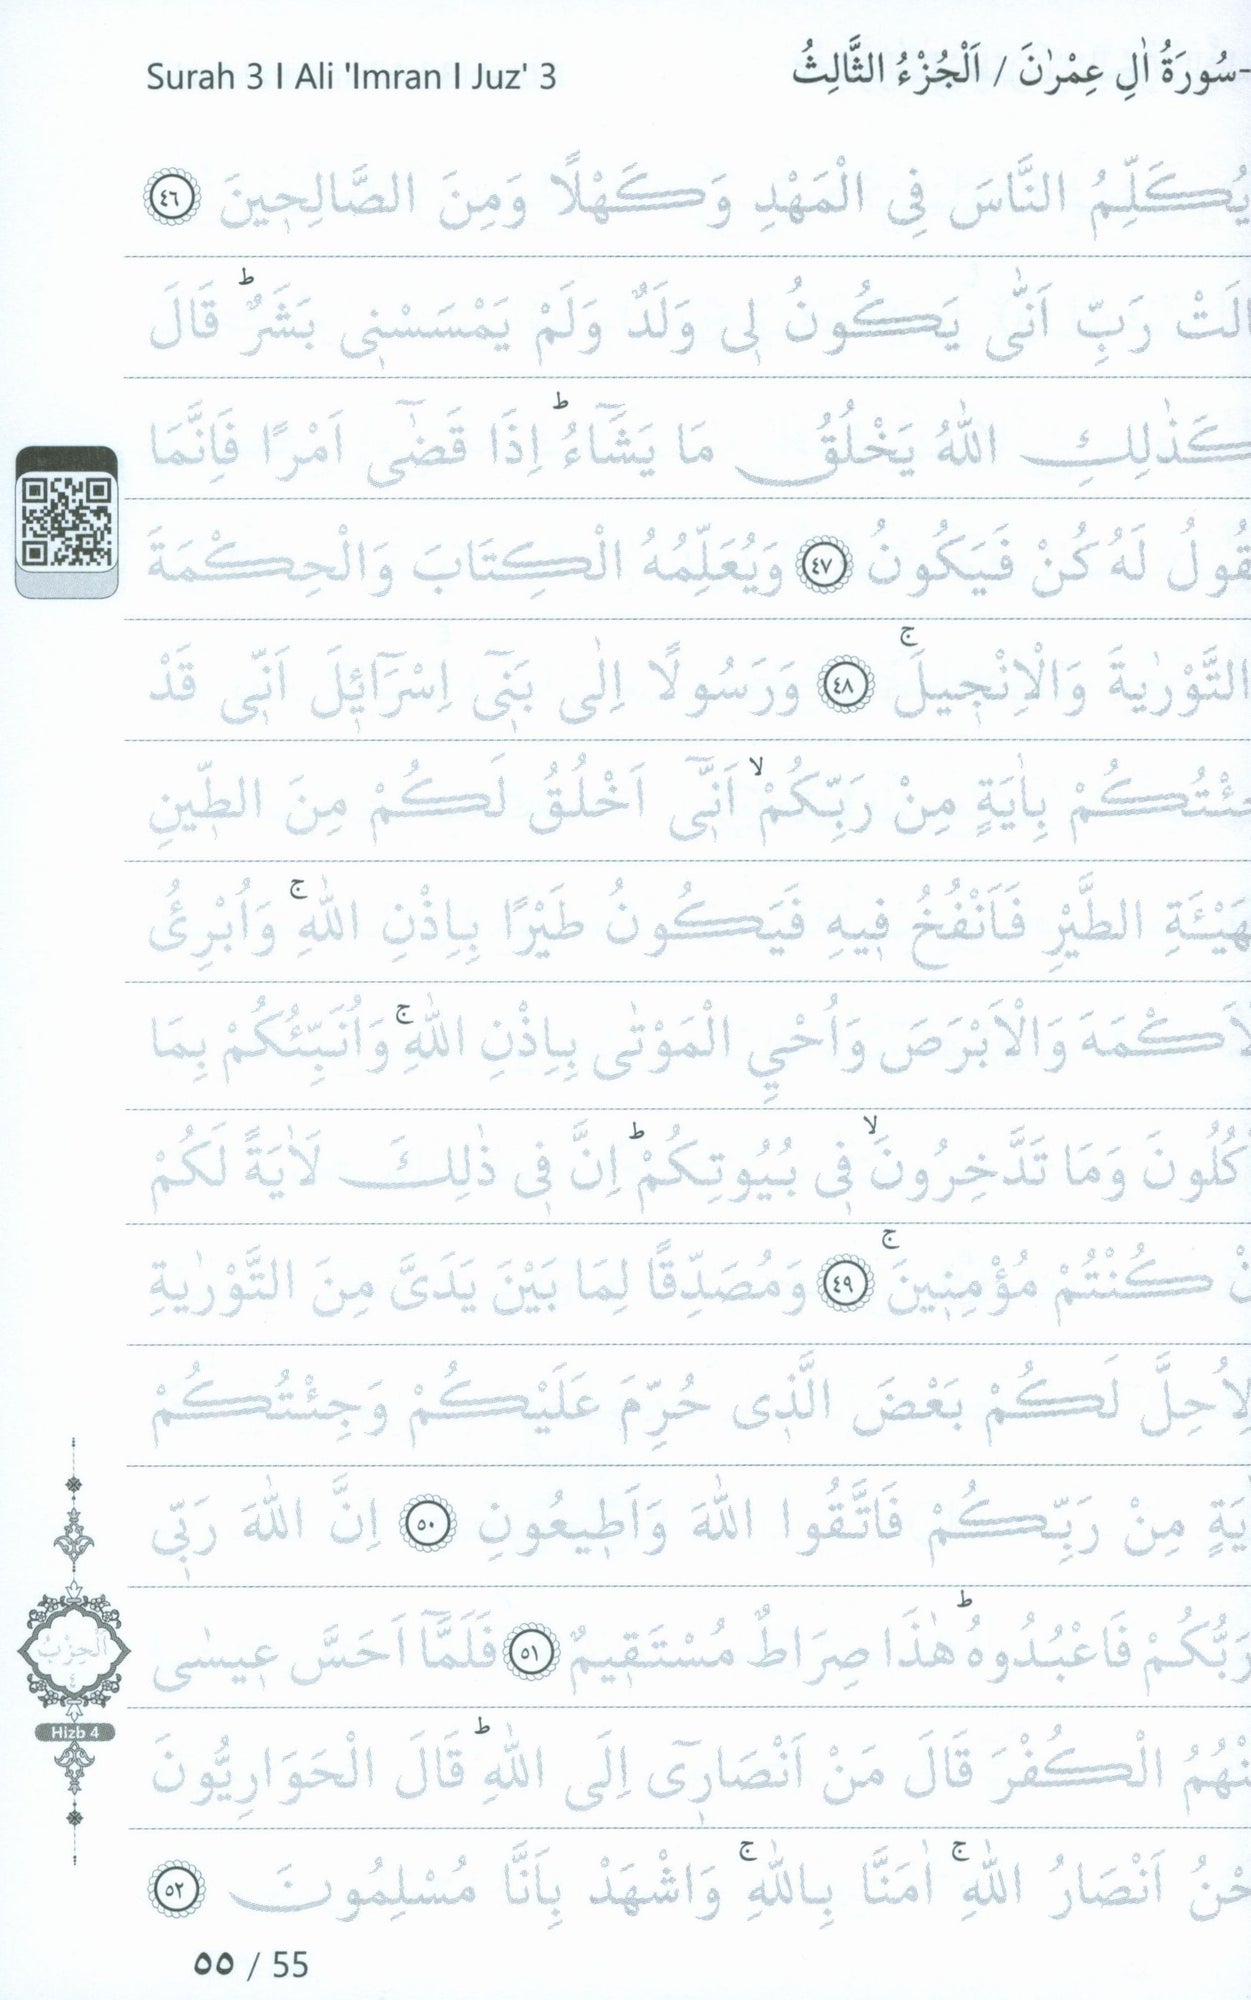 Surah 3 I Ali 'Imran I Juz' 3
-سُورَةُ اٰلِ عِمْرٰنَ / اَلْجُزْءُ الثَّالِثُ
يُكَلِّمُ النَّاسَ فِى الْمَهْدِ وَكَهْلًا وَمِنَ الصَّالِحٖينَ ٤٦
الَتْ رَبِّ اَنّٰى يَكُونُ لٖى وَلَدٌ وَلَمْ يَمْسَسْنٖى بَشَرٌؕ قَالَ
كَذٰلِكِ اللّٰهُ يَخْلُقُ مَا يَشَٓاءُؕ اِذَا قَضٰٓى اَمْرًا فَاِنَّمَا
قُولُ لَهُ كُنْ فَيَكُونُ ٤٧ وَيُعَلِّمُهُ الْكِتَابَ وَالْحِكْمَةَ
التَّوْرٰيةَ وَالْاِنْجٖيلَۚ ٤٨ وَرَسُولًا اِلٰى بَنٖٓى اِسْرَٓائٖلَ اَنّٖى قَدْ
جِئْتُكُمْ بِاٰيَةٍ مِنْ رَبِّكُمْۙ اَنّٖٓى اَخْلُقُ لَكُمْ مِنَ الطّٖينِ
هَيْـَٔةِ الطَّيْرِ فَاَنْفُخُ فٖيهِ فَيَكُونُ طَيْرًا بِاِذْنِ اللّٰهِۚ وَاُبْرِئُ
لْاَكْمَهَ وَالْاَبْرَصَ وَاُحْيِ الْمَوْتٰى بِاِذْنِ اللّٰهِۚ وَاُنَبِّئُكُمْ بِمَا
كُلُونَ وَمَا تَدَّخِرُونَۙ فٖى بُيُوتِكُمْؕ اِنَّ فٖى ذٰلِكَ لَاٰيَةً لَكُمْ
نْ كُنْتُمْ مُؤْمِنٖينَۚ ٤٩ وَمُصَدِّقًا لِمَا بَيْنَ يَدَىَّ مِنَ التَّوْرٰيةِ
لِاُحِلَّ لَكُمْ بَعْضَ الَّذٖى حُرِّمَ عَلَيْكُمْ وَجِئْتُكُمْ
يَةٍ مِنْ رَبِّكُمْ فَاتَّقُوا اللّٰهَ وَاَطٖيعُونِ ٥٠ اِنَّ اللّٰهَ رَبّٖى
رَبُّكُمْ فَاعْبُدُوهُؕ هٰذَا صِرَاطٌ مُسْتَقٖيمٌ ٥١ فَلَمَّٓا اَحَسَّ عٖيسٰى
نْهُمُ الْكُفْرَ قَالَ مَنْ اَنْصَارٖٓى اِلَى اللّٰهِؕ قَالَ الْحَوَارِيُّونَ
حْنُ اَنْصَارُ اللّٰهِۚ اٰمَنَّا بِاللّٰهِۚ وَاشْهَدْ بِاَنَّا مُسْلِمُونَ ٥٢
اَلْحِزْبُ
٤
Hizb 4
٥٥ / 55